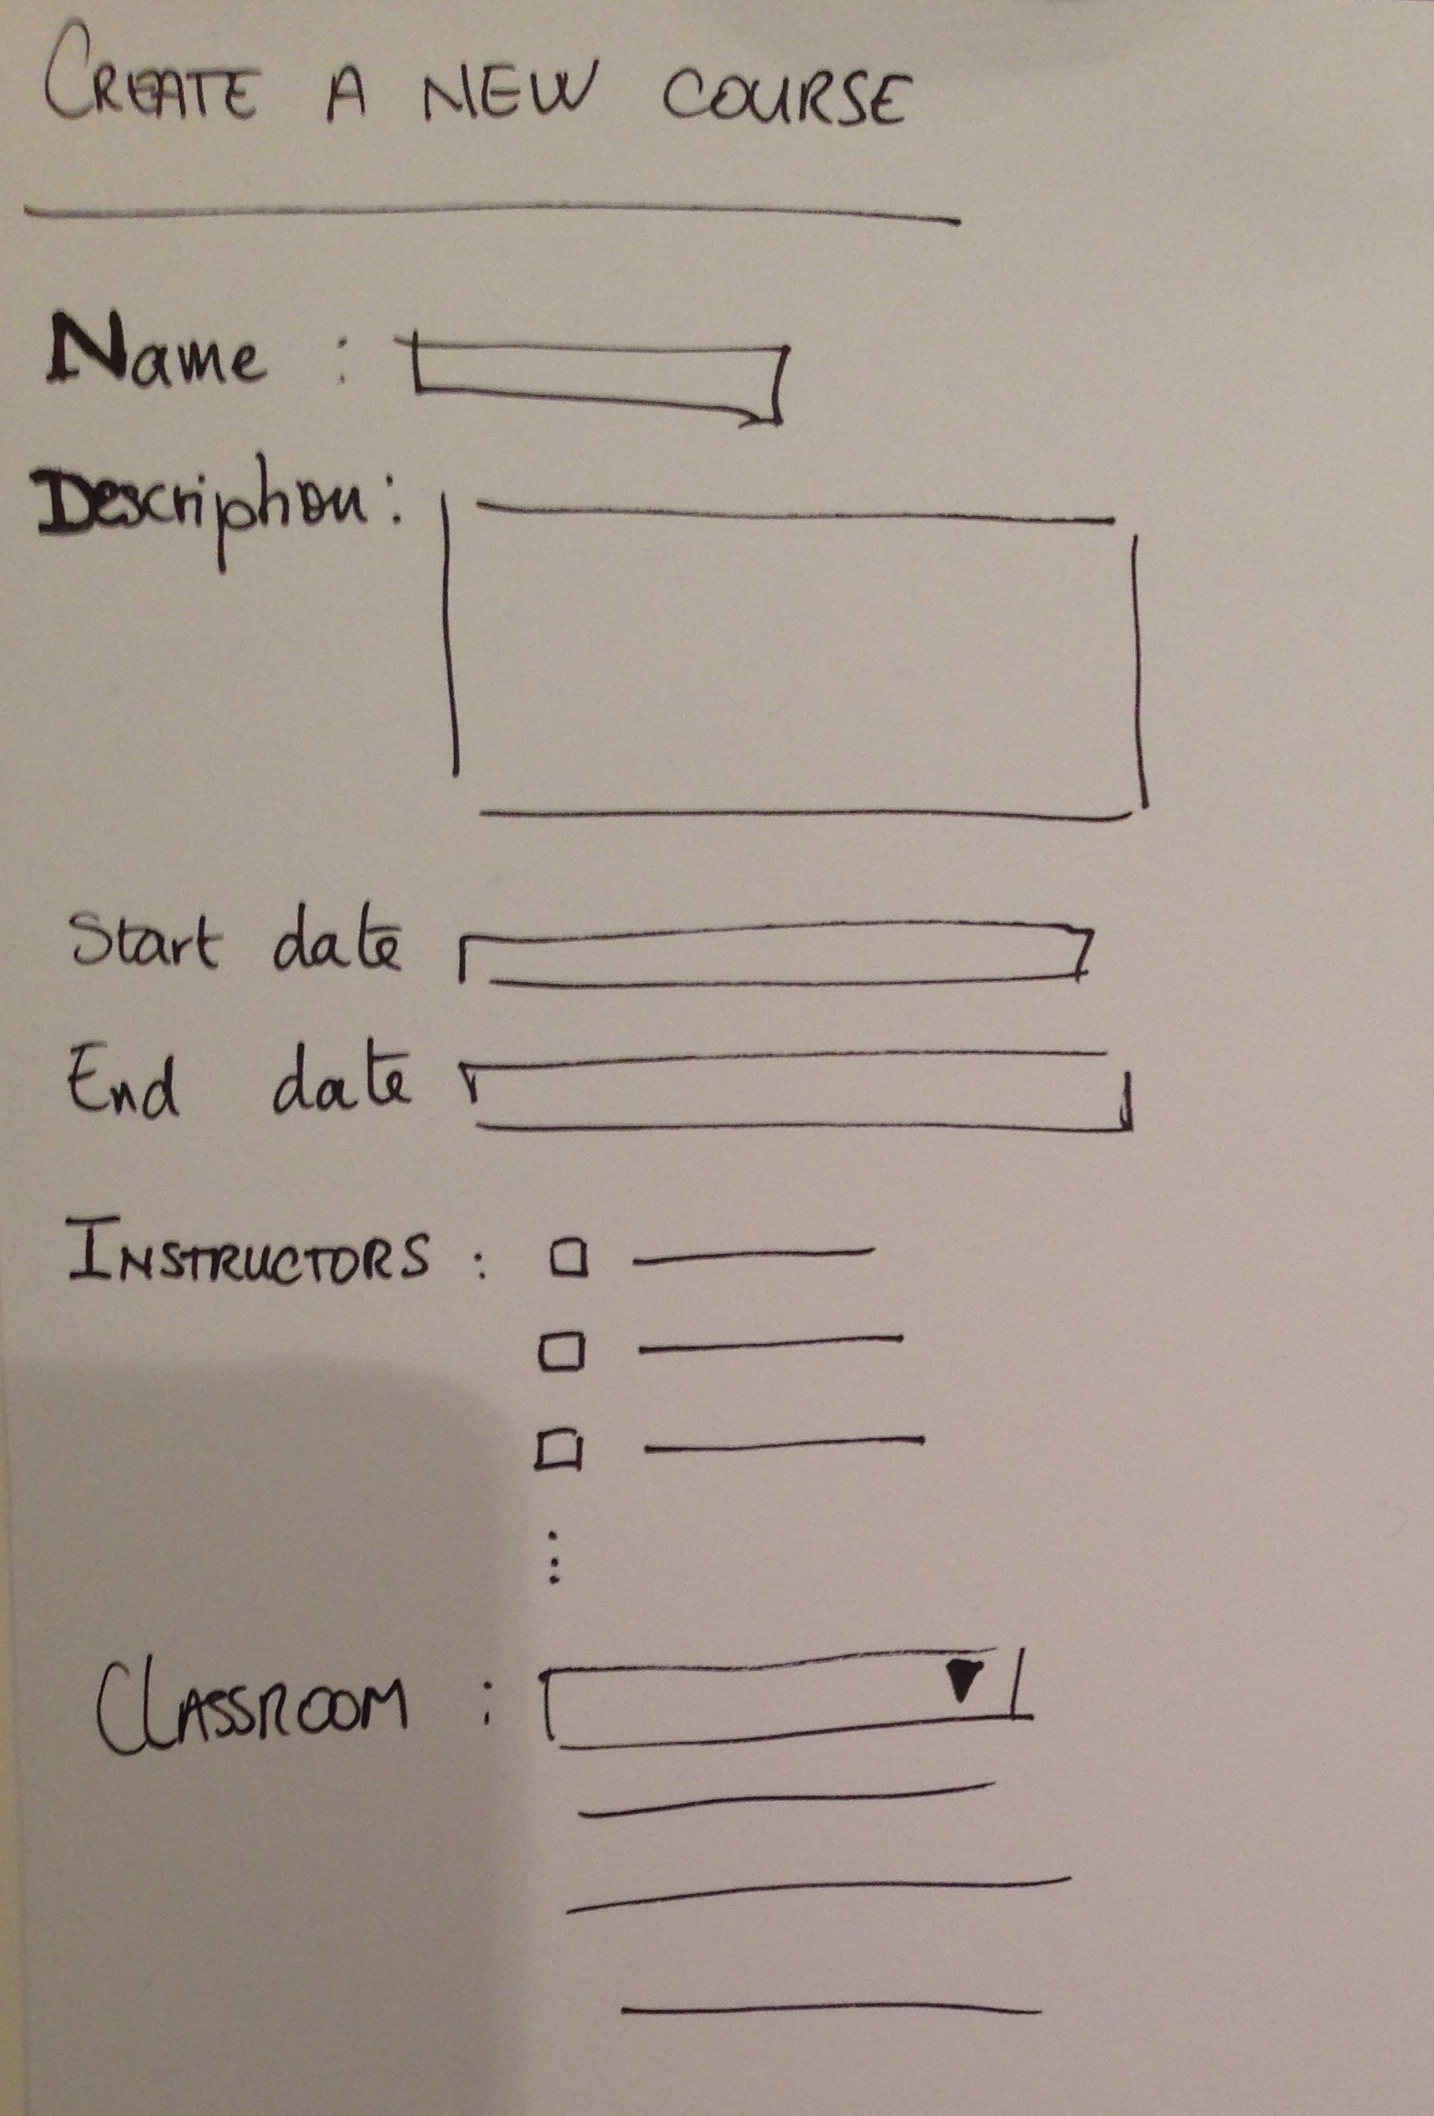 CREATE A NEW COURSE
Name :
Description :
Start date
End date
INSTRUCTORS :
CLASSROOM :